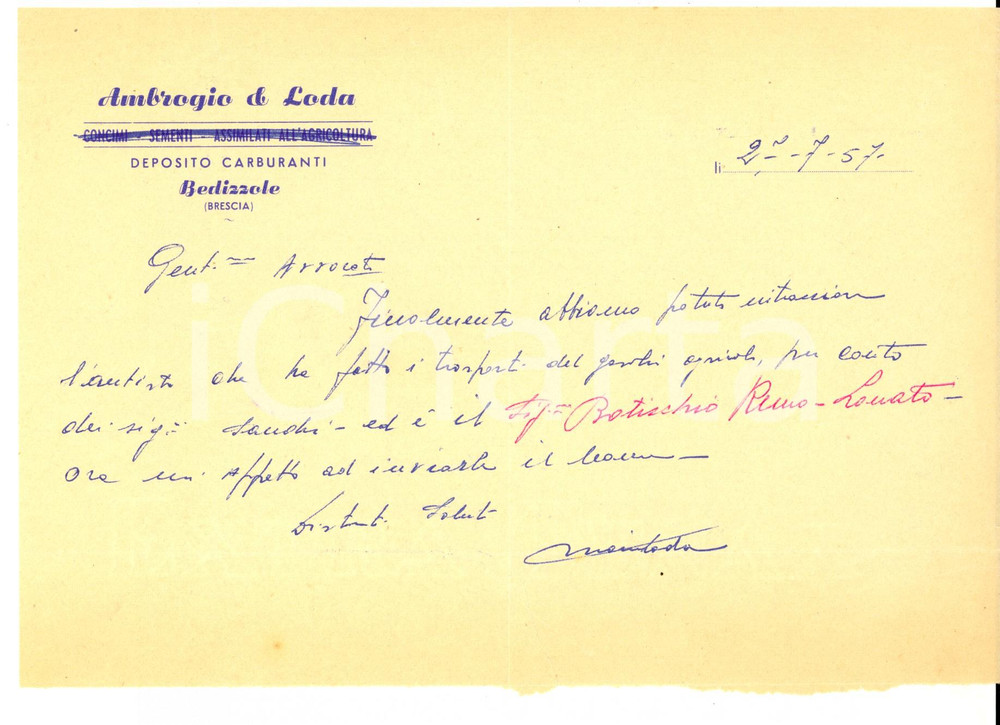 Ambrogio & Loda
CONCIMI - SEMENTI - ASSIMILATI ALL'AGRICOLTURA
DEPOSITO CARBURANTI
Bedizzole
(BRESCIA)
li 2-7-57-
Gent.mo Avvocato
Finalmente abbiamo potuto rintracciare
l'autista che ha fatto i trasporti del gasolio agricolo, per conto
dei sig.ri - ed è il Sig.re Botischio Remo - Lonato -
Ora mi affretto ad inviarle il
Distinti Saluti
iCharta